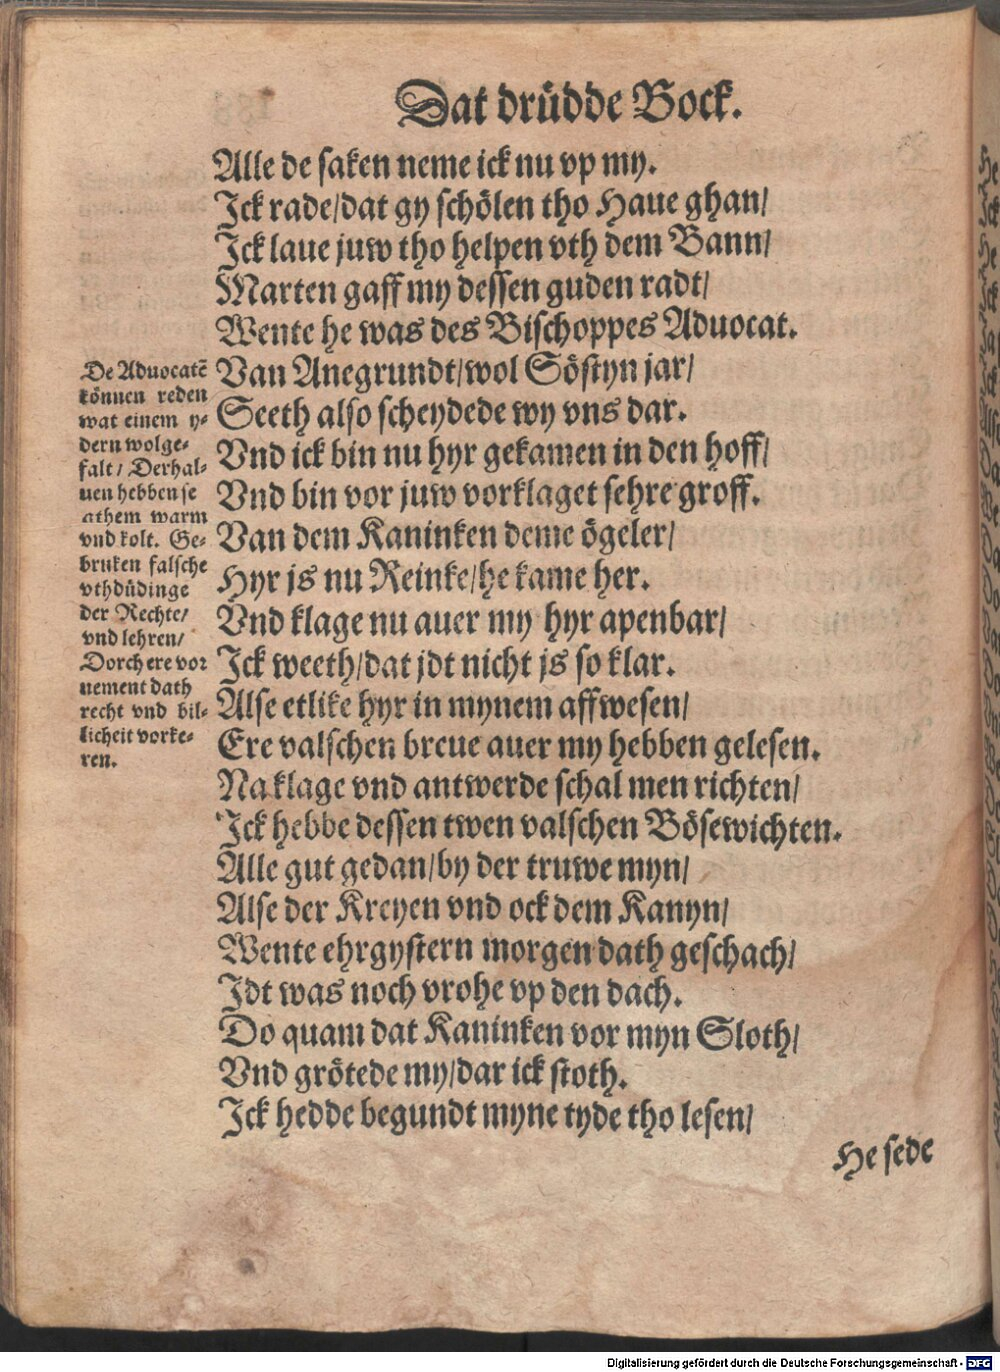 Dat drüdde Bock.
Alle de saken neme ick nu vp my.
Jck rade/dat gy schölen tho Haue ghan/
Jck laue juw tho helpen vth dem Bann/
Marten gaff my dessen guden radt/
Wente he was des Bischoppes Aduocat.
Van Anegrundt/wol Söstyn jar/
Seeth also scheydede wy vns dar.
Vnd ick bin nu hyr gekamen in den hoff/
Vnd bin vor juw vorklaget sehre groff.
Van dem Kaninken deme ögeler/
Hyr js nu Reinke/he kame her.
Vnd klage nu auer my hyr apenbar/
Jck weeth/dat jdt nicht js so klar.
Alse etlike hyr in mynem affwesen/
Ere valschen breue auer my hebben gelesen.
Na klage vnd antwerde schal men richten/
Jck hebbe dessen twen valschen Bösewichten.
Alle gut gedan/by der truwe myn/
Alse der Kreyen vnd ock dem Kanyn/
Wente ehrgystern morgen dath geschach/
Jdt was noch vrohe vp den dach.
Do quam dat Kaninken vor myn Sloth/
Vnd grötede my/dar ick stoth.
Jck hedde begundt myne tyde tho lesen/
He sede
De Aduocatē
können reden
wat einem y-
dern wolge-
falt/ Derhal-
uen hebben se
athem warm
vnd kolt. Ge-
bruken falsche
vthdüdinge
der Rechte/
vnd lehren/
Dorch ere vor
nement dath
recht vnd bil-
licheit vorke-
ren.
Digitalisierung gefördert durch die Deutsche Forschungsgemeinschaft - DFG